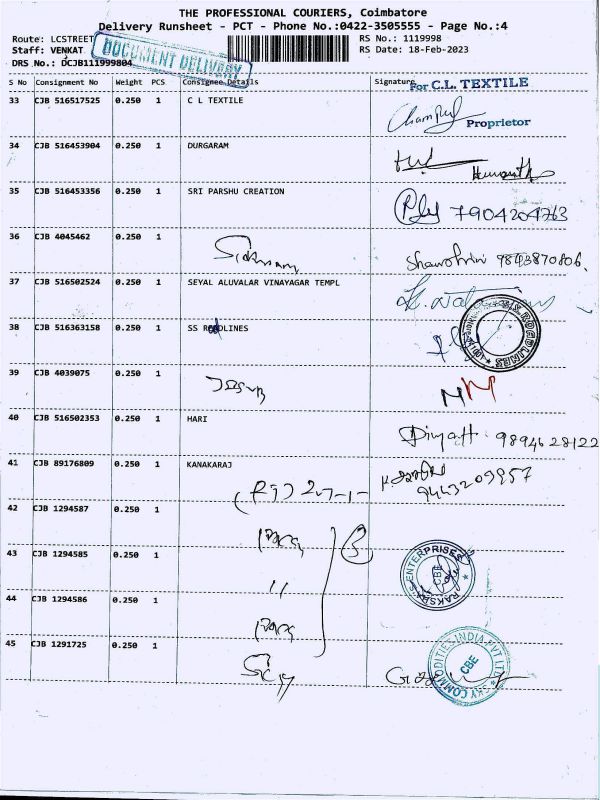 THE PROFESSIONAL COURIERS, Coimbatore
Delivery Runsheet - PCT - Phone No.:0422-3505555 - Page No.:4
Route: LCSTREET RS No.: 1119998
Staff: VENKAT RS Date: 18-Feb-2023
DRS No.: DCJB111999804
DOCUMENT DELIVERY
S No Consignment No Weight PCS Consignee Details Signature
For C.L. TEXTILE
33 CJB 516517525 0.250 1 C L TEXTILE
Proprietor
34 CJB 516453904 0.250 1 DURGARAM
35 CJB 516453356 0.250 1 SRI PARSHU CREATION
7904204763
36 CJB 4045462 0.250 1
9843870806
37 CJB 516502524 0.250 1 SEYAL ALUVALAR VINAYAGAR TEMPL
38 CJB 516363158 0.250 1 SS LINES
ROADLINES
39 CJB 4039075 0.250 1
40 CJB 516502353 0.250 1 HARI
9894628122
41 CJB 89176809 0.250 1 KANAKARAJ
9443209957
42 CJB 1294587 0.250 1
43 CJB 1294585 0.250 1
RAKSBA'S ENTERPRISES
CBE
44 CJB 1294586 0.250 1
45 CJB 1291725 0.250 1
SKY COMMODITIES INDIA PVT LTD
CBE